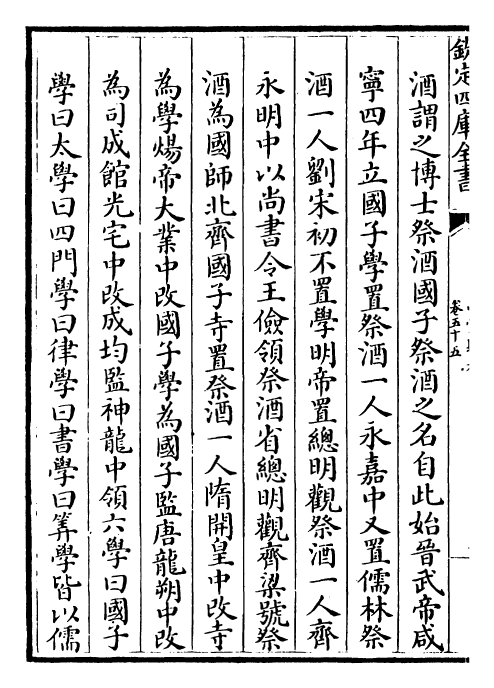 欽定四庫全書
卷五十五
酒謂之博士祭酒國子祭酒之名自此始晉武帝咸
寧四年立國子學置祭酒一人永嘉中又置儒林祭
酒一人劉宋初不置學明帝置總明觀祭酒一人齊
永明中以尚書令王儉領祭酒省總明觀齊梁號祭
酒為國師北齊國子寺置祭酒一人隋開皇中改寺
為學煬帝大業中改國子學為國子監唐龍朔中改
為司成館光宅中改成均監神龍中領六學曰國子
學曰太學曰四門學曰律學曰書學曰筭學皆以儒